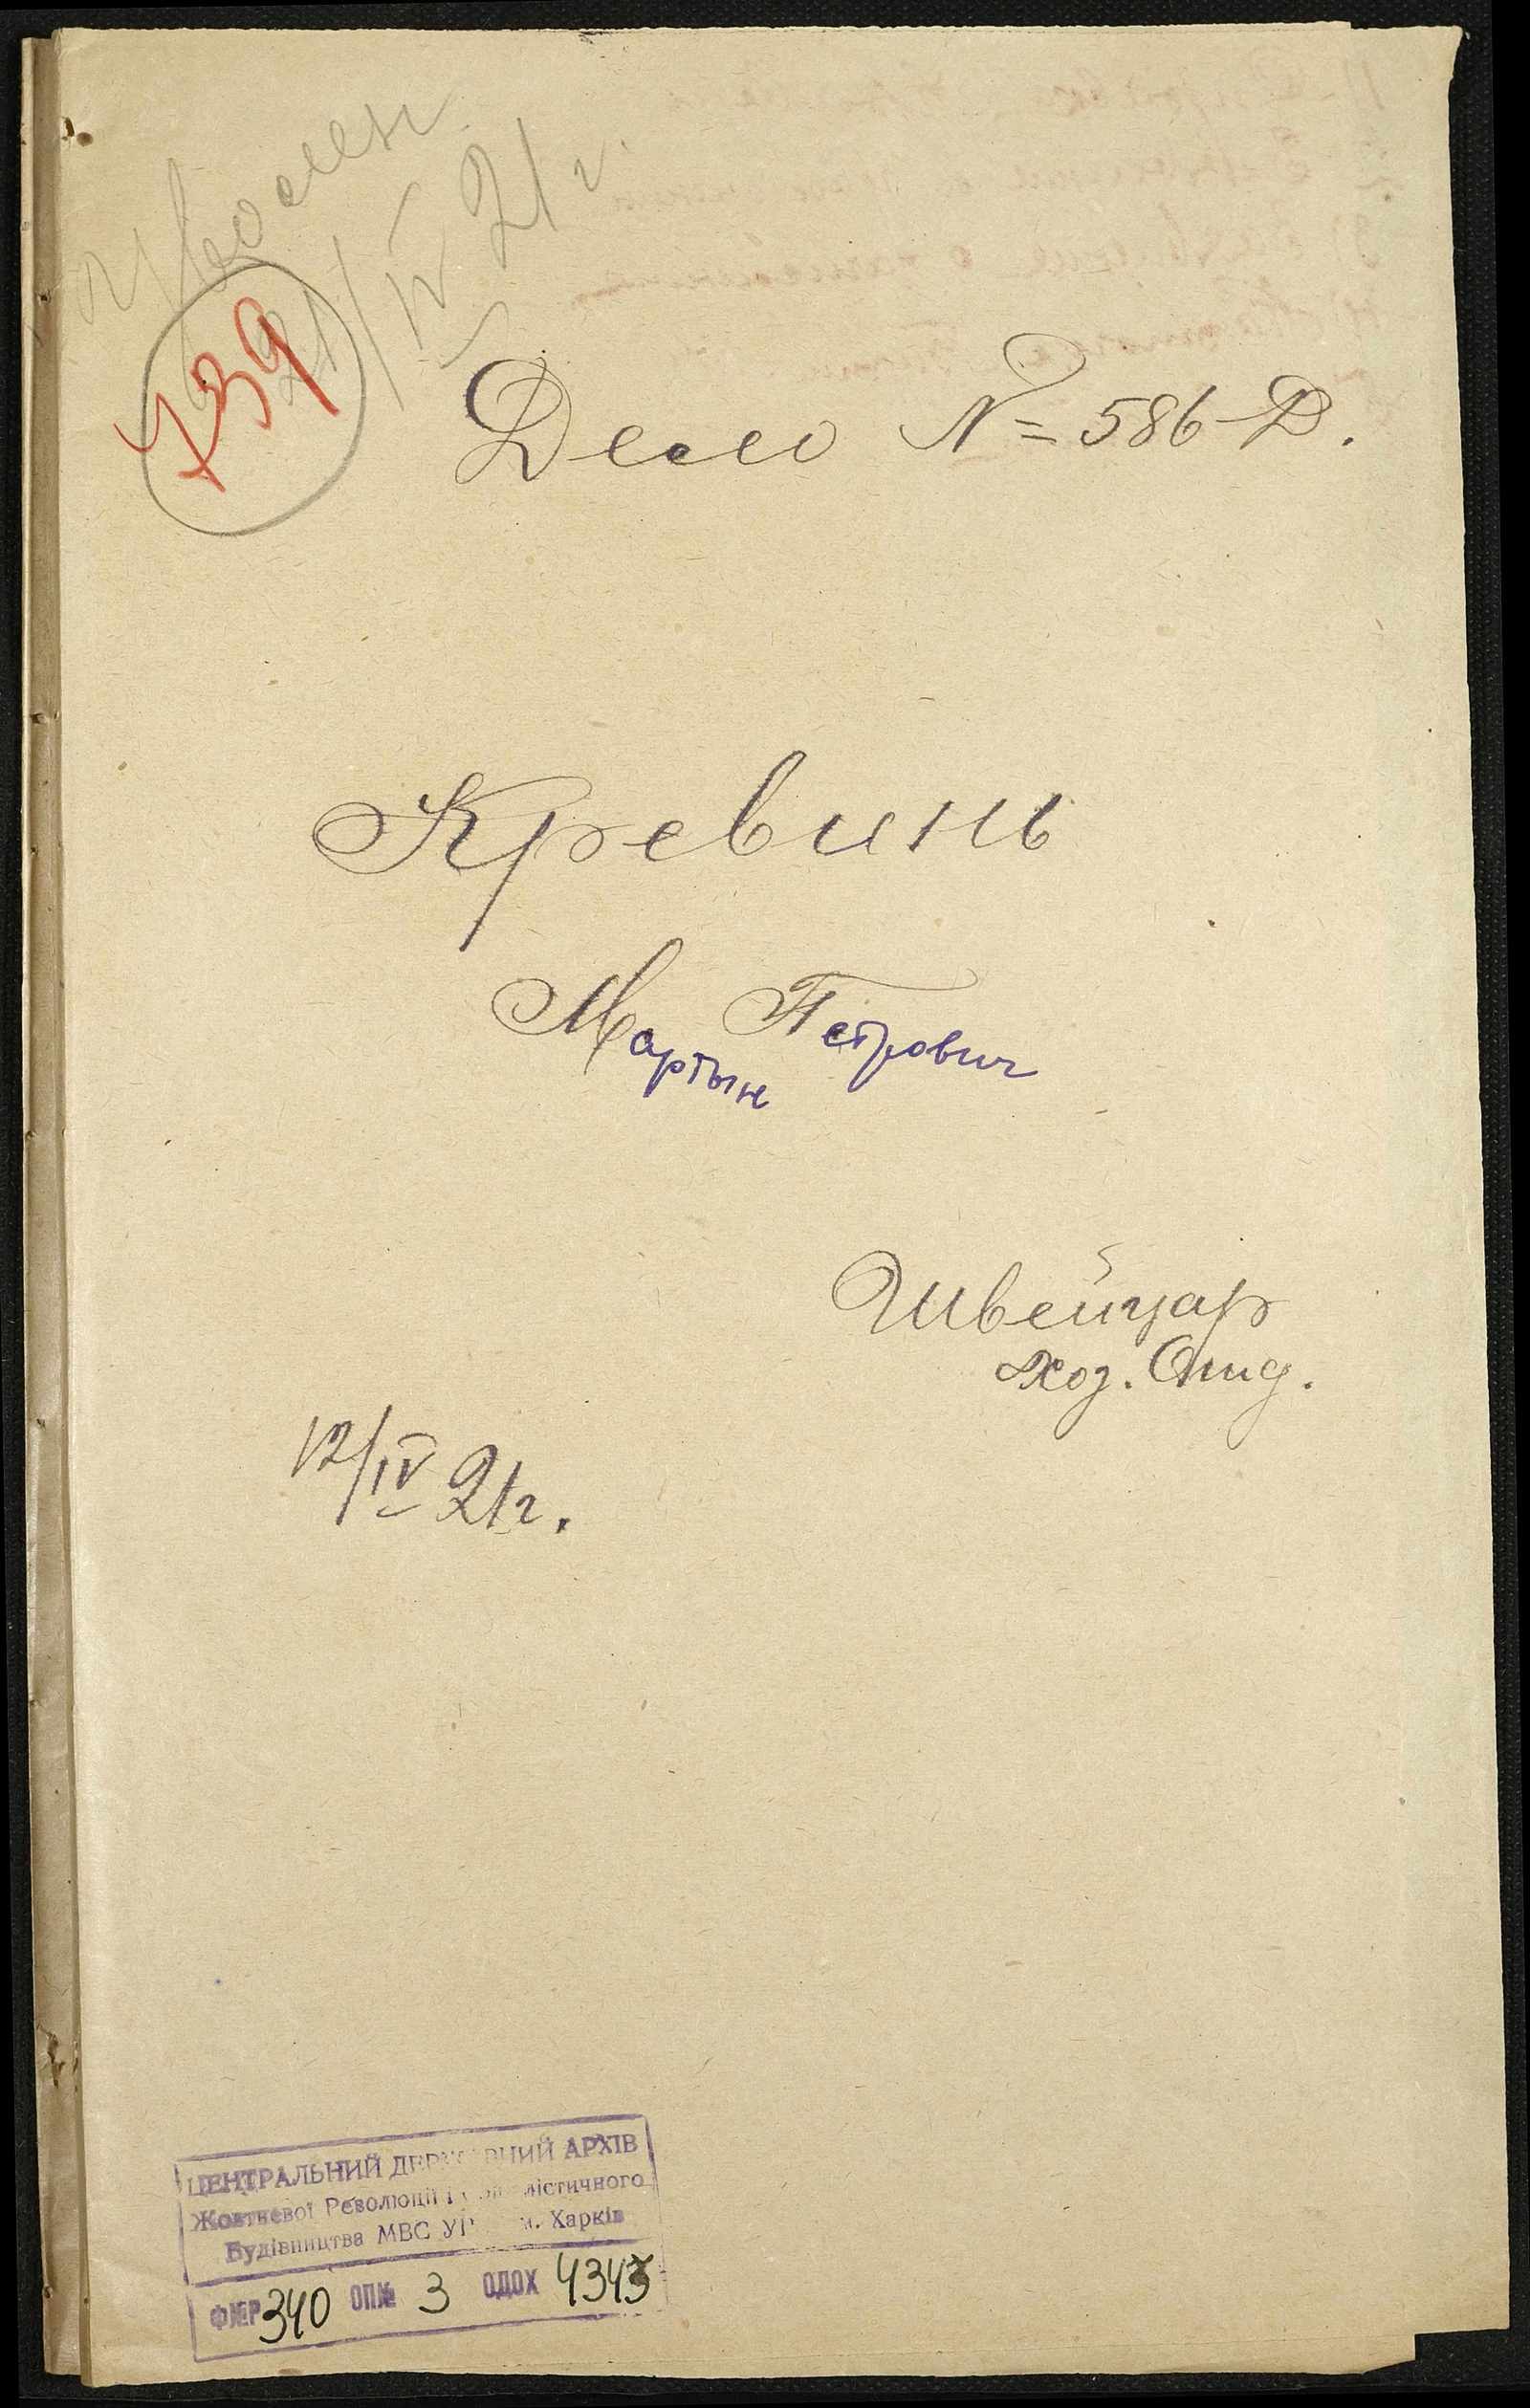 Уволен
21/IV 21 г.
739
Дело № 586-Д.
Кревинь
Мартын Петрович
Швейцар
Хоз. Отд.
12/IV 21г.
ЦЕНТРАЛЬНИЙ АРХІВ
Жовтневої Революції і
Будівництва МВС м. Харків
Ф№Р 340 ОП№ 3 ОДОХ 4343